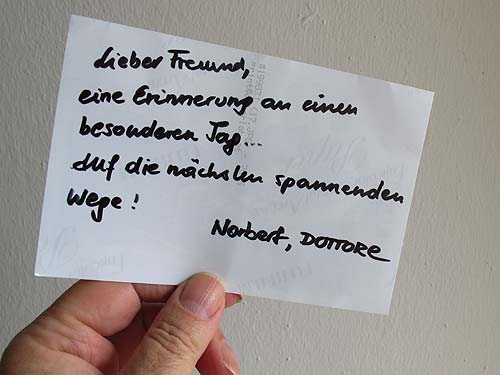 Lieber Freund,
eine Erinnerung an einen
besonderen Tag...
Auf die nächsten spannenden
Wege!
Norbert, DOTTORE